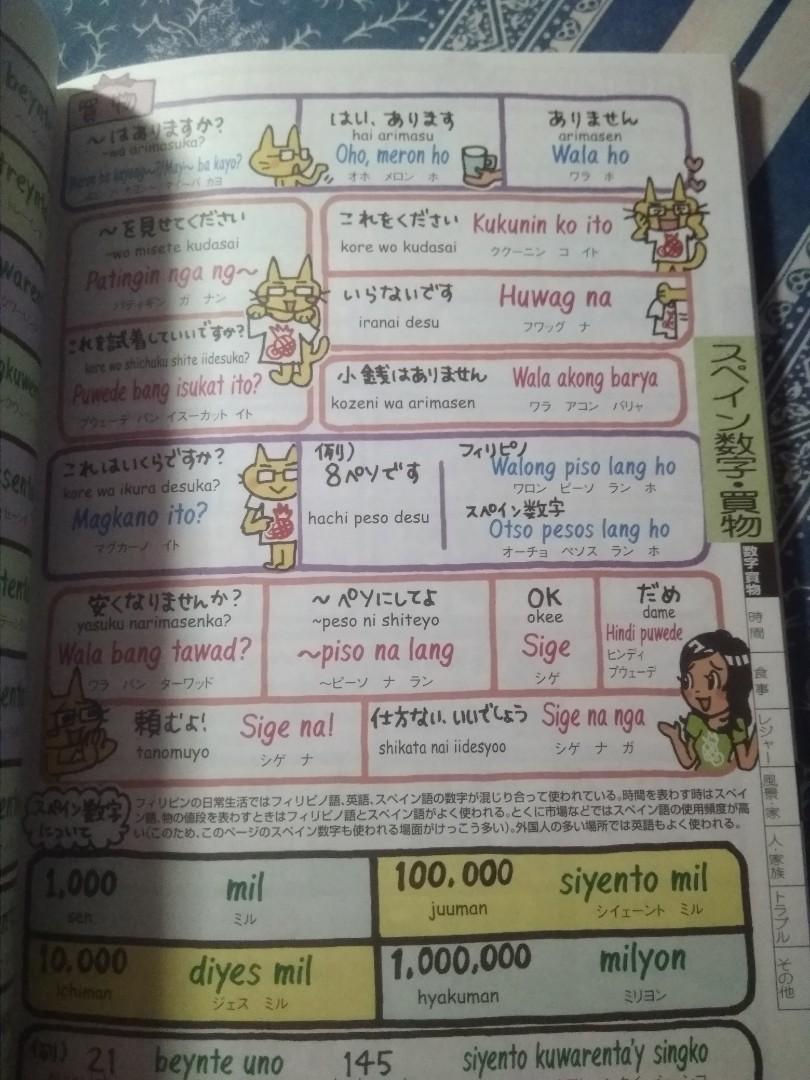 買物
〜はありますか?
~wa arimasuka?
Meron ba kayong~?/May~ ba kayo?
はい、あります
hai arimasu
Oho, meron ho
オホ メロン ホ
ありません
arimasen
Wala ho
ワラ ホ
〜を見せてください
~wo misete kudasai
Patingin nga ng〜
パティギン ガ ナン
これを試着していいですか?
kore wo shichaku shite iidesuka?
Puwede bang isukat ito?
プウェーデ バン イスーカット イト
これをください Kukunin ko ito
kore wo kudasai ククーニン コ イト
いらないです Huwag na
iranai desu フワッグ ナ
小銭はありません Wala akong barya
kozeni wa arimasen ワラ アコン バリャ
これはいくらですか?
kore wa ikura desuka?
Magkano ito?
マグカーノ イト
例)
8ペソです
hachi peso desu
フィリピノ
Walong piso lang ho
ワロン ピーソ ラン ホ
スペイン数字
Otso pesos lang ho
オーチョ ペソス ラン ホ
安くなりませんか?
yasuku narimasenka?
Wala bang tawad?
ワラ バン ターワッド
〜ペソにしてよ
~peso ni shiteyo
〜piso na lang
〜ピーソ ナ ラン
OK
okee
Sige
シゲ
だめ
dame
Hindi puwede
ヒンディ
プウェーデ
頼むよ! Sige na!
tanomuyo シゲ ナ
仕方ない、いいでしょう Sige na nga
shikata nai iidesyoo シゲ ナ ガ
スペイン数字
について
フィリピンの日常生活ではフィリピノ語、英語、スペイン語の数字が混じり合って使われている。時間を表わす時はスペイ
ン語、物の値段を表わすときはフィリピノ語とスペイン語がよく使われる。とくに市場などではスペイン語の使用頻度が高
い(このため、このページのスペイン数字も使われる場面がけっこう多い)。外国人の多い場所では英語もよく使われる。
1,000 mil
sen ミル
100,000 siyento mil
juuman シイェーント ミル
10,000 diyes mil
ichiman ジェス ミル
1,000,000 milyon
hyakuman ミリヨン
例) 21 beynte uno 145 siyento kuwarenta'y singko
スペイン数字・買物
数字・買物
時間
食事
レジャー
風景・家
人・家族
トラブル
その他